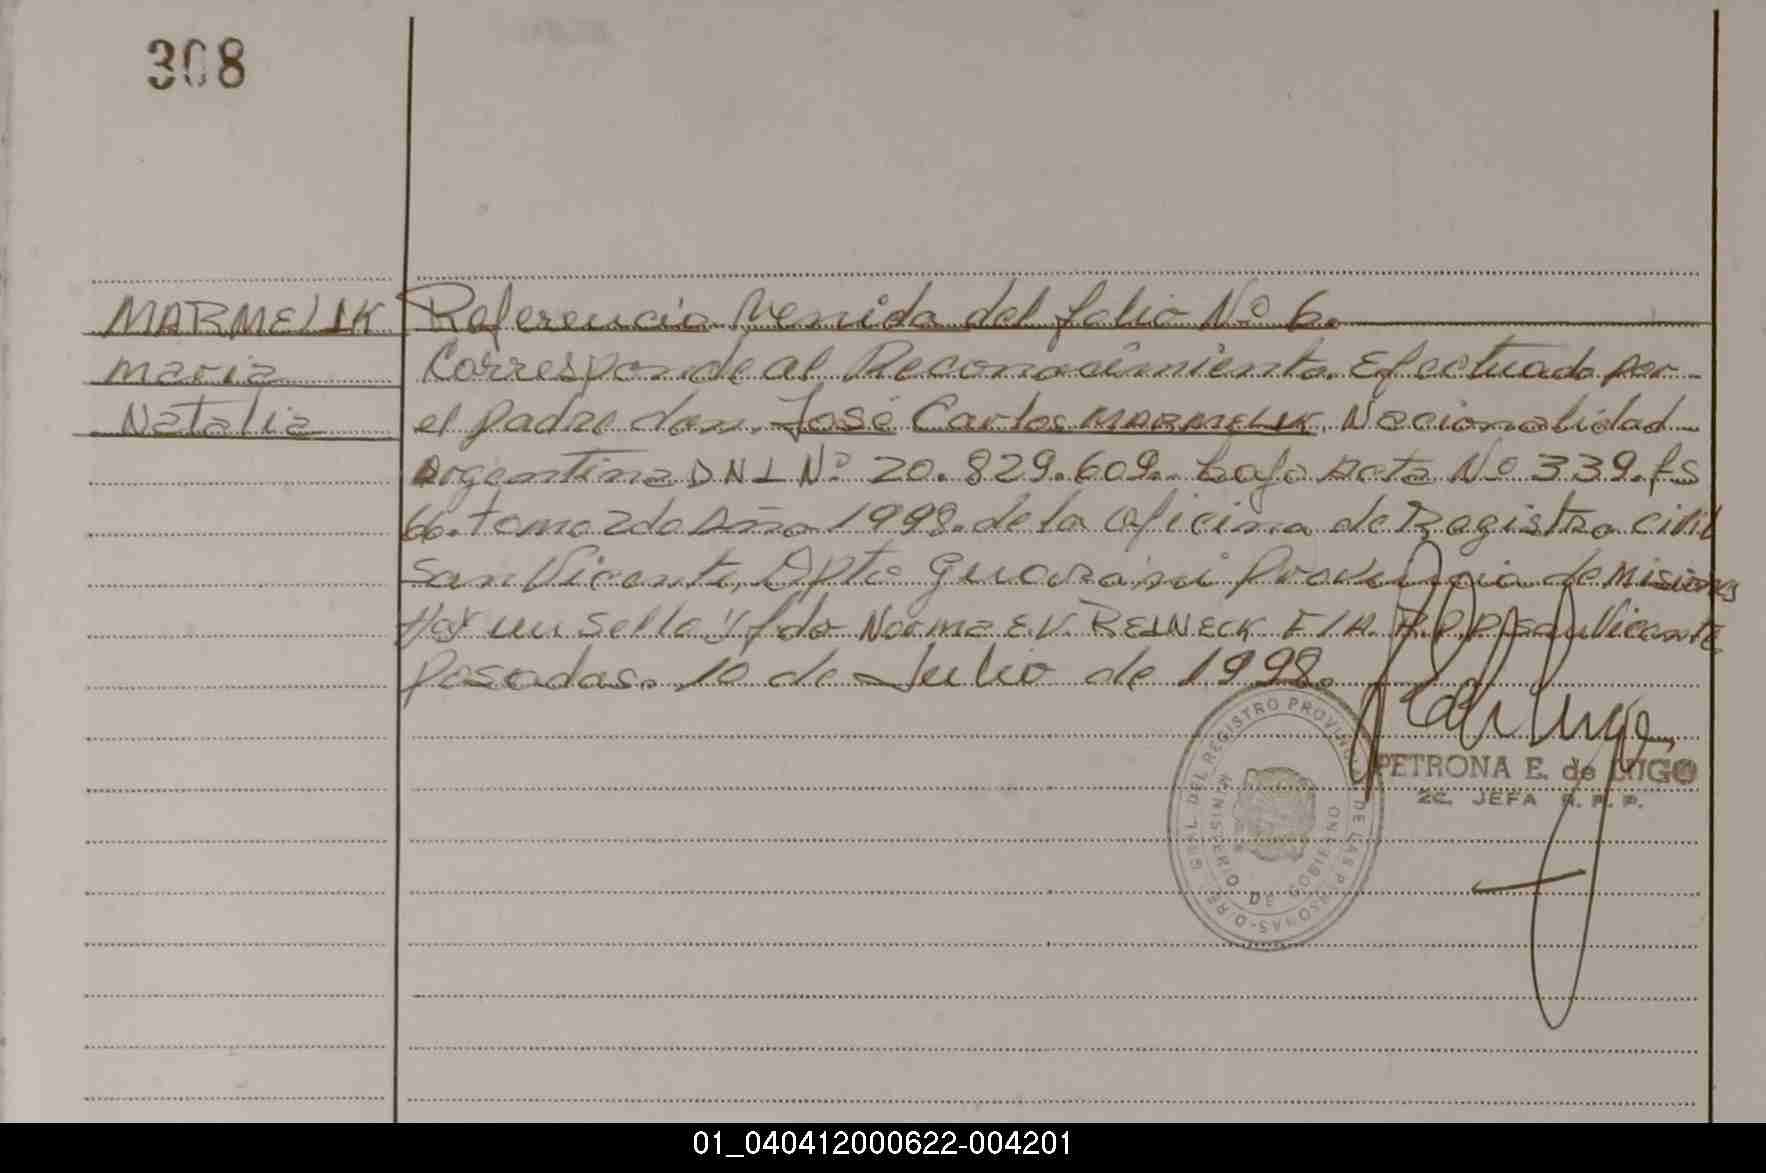 308
MARMELIK
Maria
Natalia
Referencia Venida del folio Nº 6.
Corresponde al Reconocimiento Efectuado por
el padre don José Carlos MARMELIK Nacionalidad
Argentina DNI Nº 20.829.609. bajo Acta Nº 339. fs
66. tomo 2do Año 1998. de la oficina de Registro civil
San Vicente, Dpto Guarani Provincia de Misiones
Hay un Sello y fdo Norma E.V. REINECK E/A. R.P.P San Vicente
Posadas. 10 de Julio de 1998.
PETRONA E. de LUGO
2C. JEFA R. P. P.
DIR. GRAL. DEL REGISTRO PROVINCIAL DE LAS PERSONAS
MINISTERIO DE GOBIERNO
01_040412000622-004201